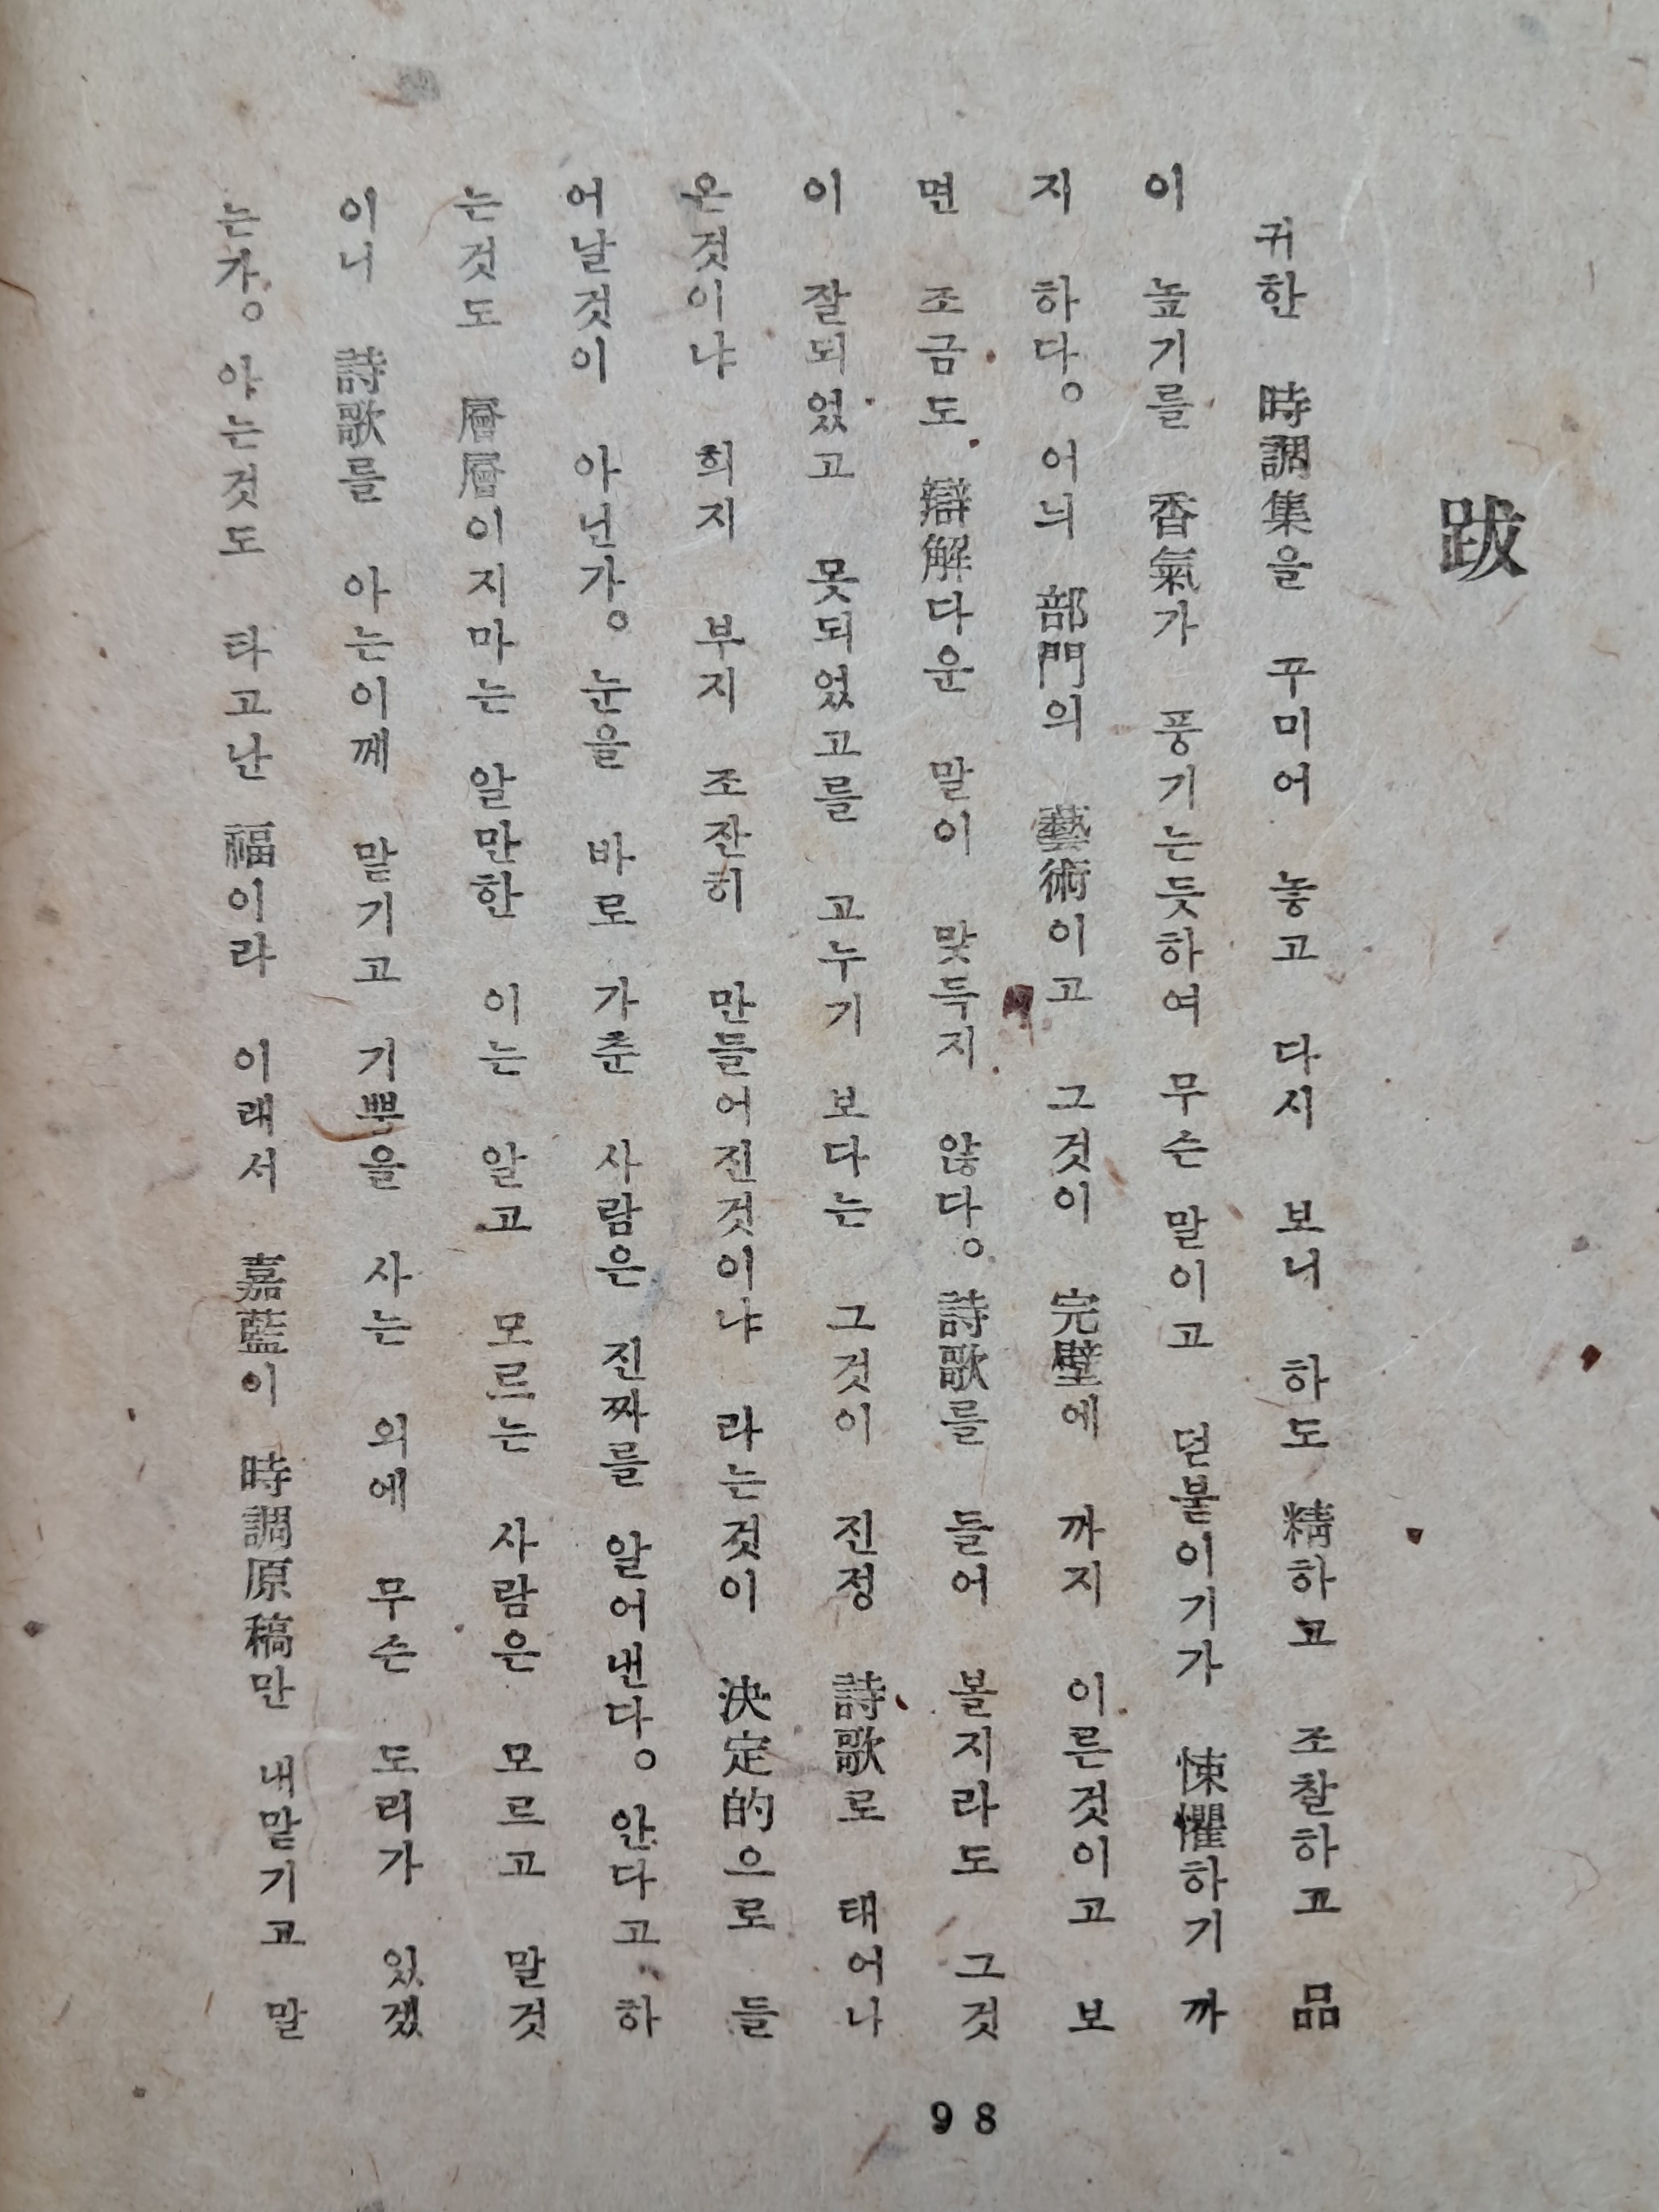 跋
귀한 時調集을 꾸미어 놓고 다시 보니 하도 精하고 조찰하고 品
이 높기를 香氣가 풍기는듯하여 무슨 말이고 덛붙이기가 悚懼하기 까
지 하다。 어늬 部門의 藝術이고 그것이 完璧에 까지 이른것이고 보
면 조금도 辯解다운 말이 맞득지 않다。 詩歌를 들어 볼지라도 그것
이 잘되었고 못되었고를 고누기 보다는 그것이 진정 詩歌로 태어나
온것이냐 희지 부지 조잔히 만들어진것이냐 라는것이 決定的으로 들
어날것이 아닌가。 눈을 바로 가춘 사람은 진짜를 알어낸다。 안다고 하
는것도 層層이지마는 알만한 이는 알고 모르는 사람은 모르고 말것
이니 詩歌를 아는이께 맡기고 기쁨을 사는 외에 무슨 도리가 있겠
는가。 아는것도 타고난 福이라 이래서 嘉藍이 時調原稿만 내맡기고 말
98